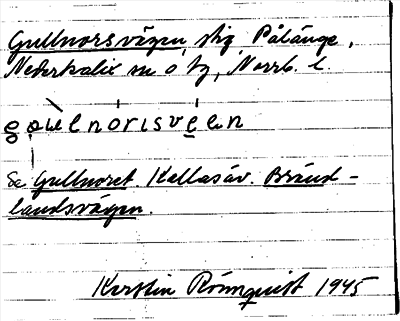 Gullnorsvägen, stig, Pålänge,
Nederkalix sn o tg, Norrb. l.
Se Gullnoret. Kallasåv. Bränd-
landsvägen.
Kerstin Rönnquist 1945